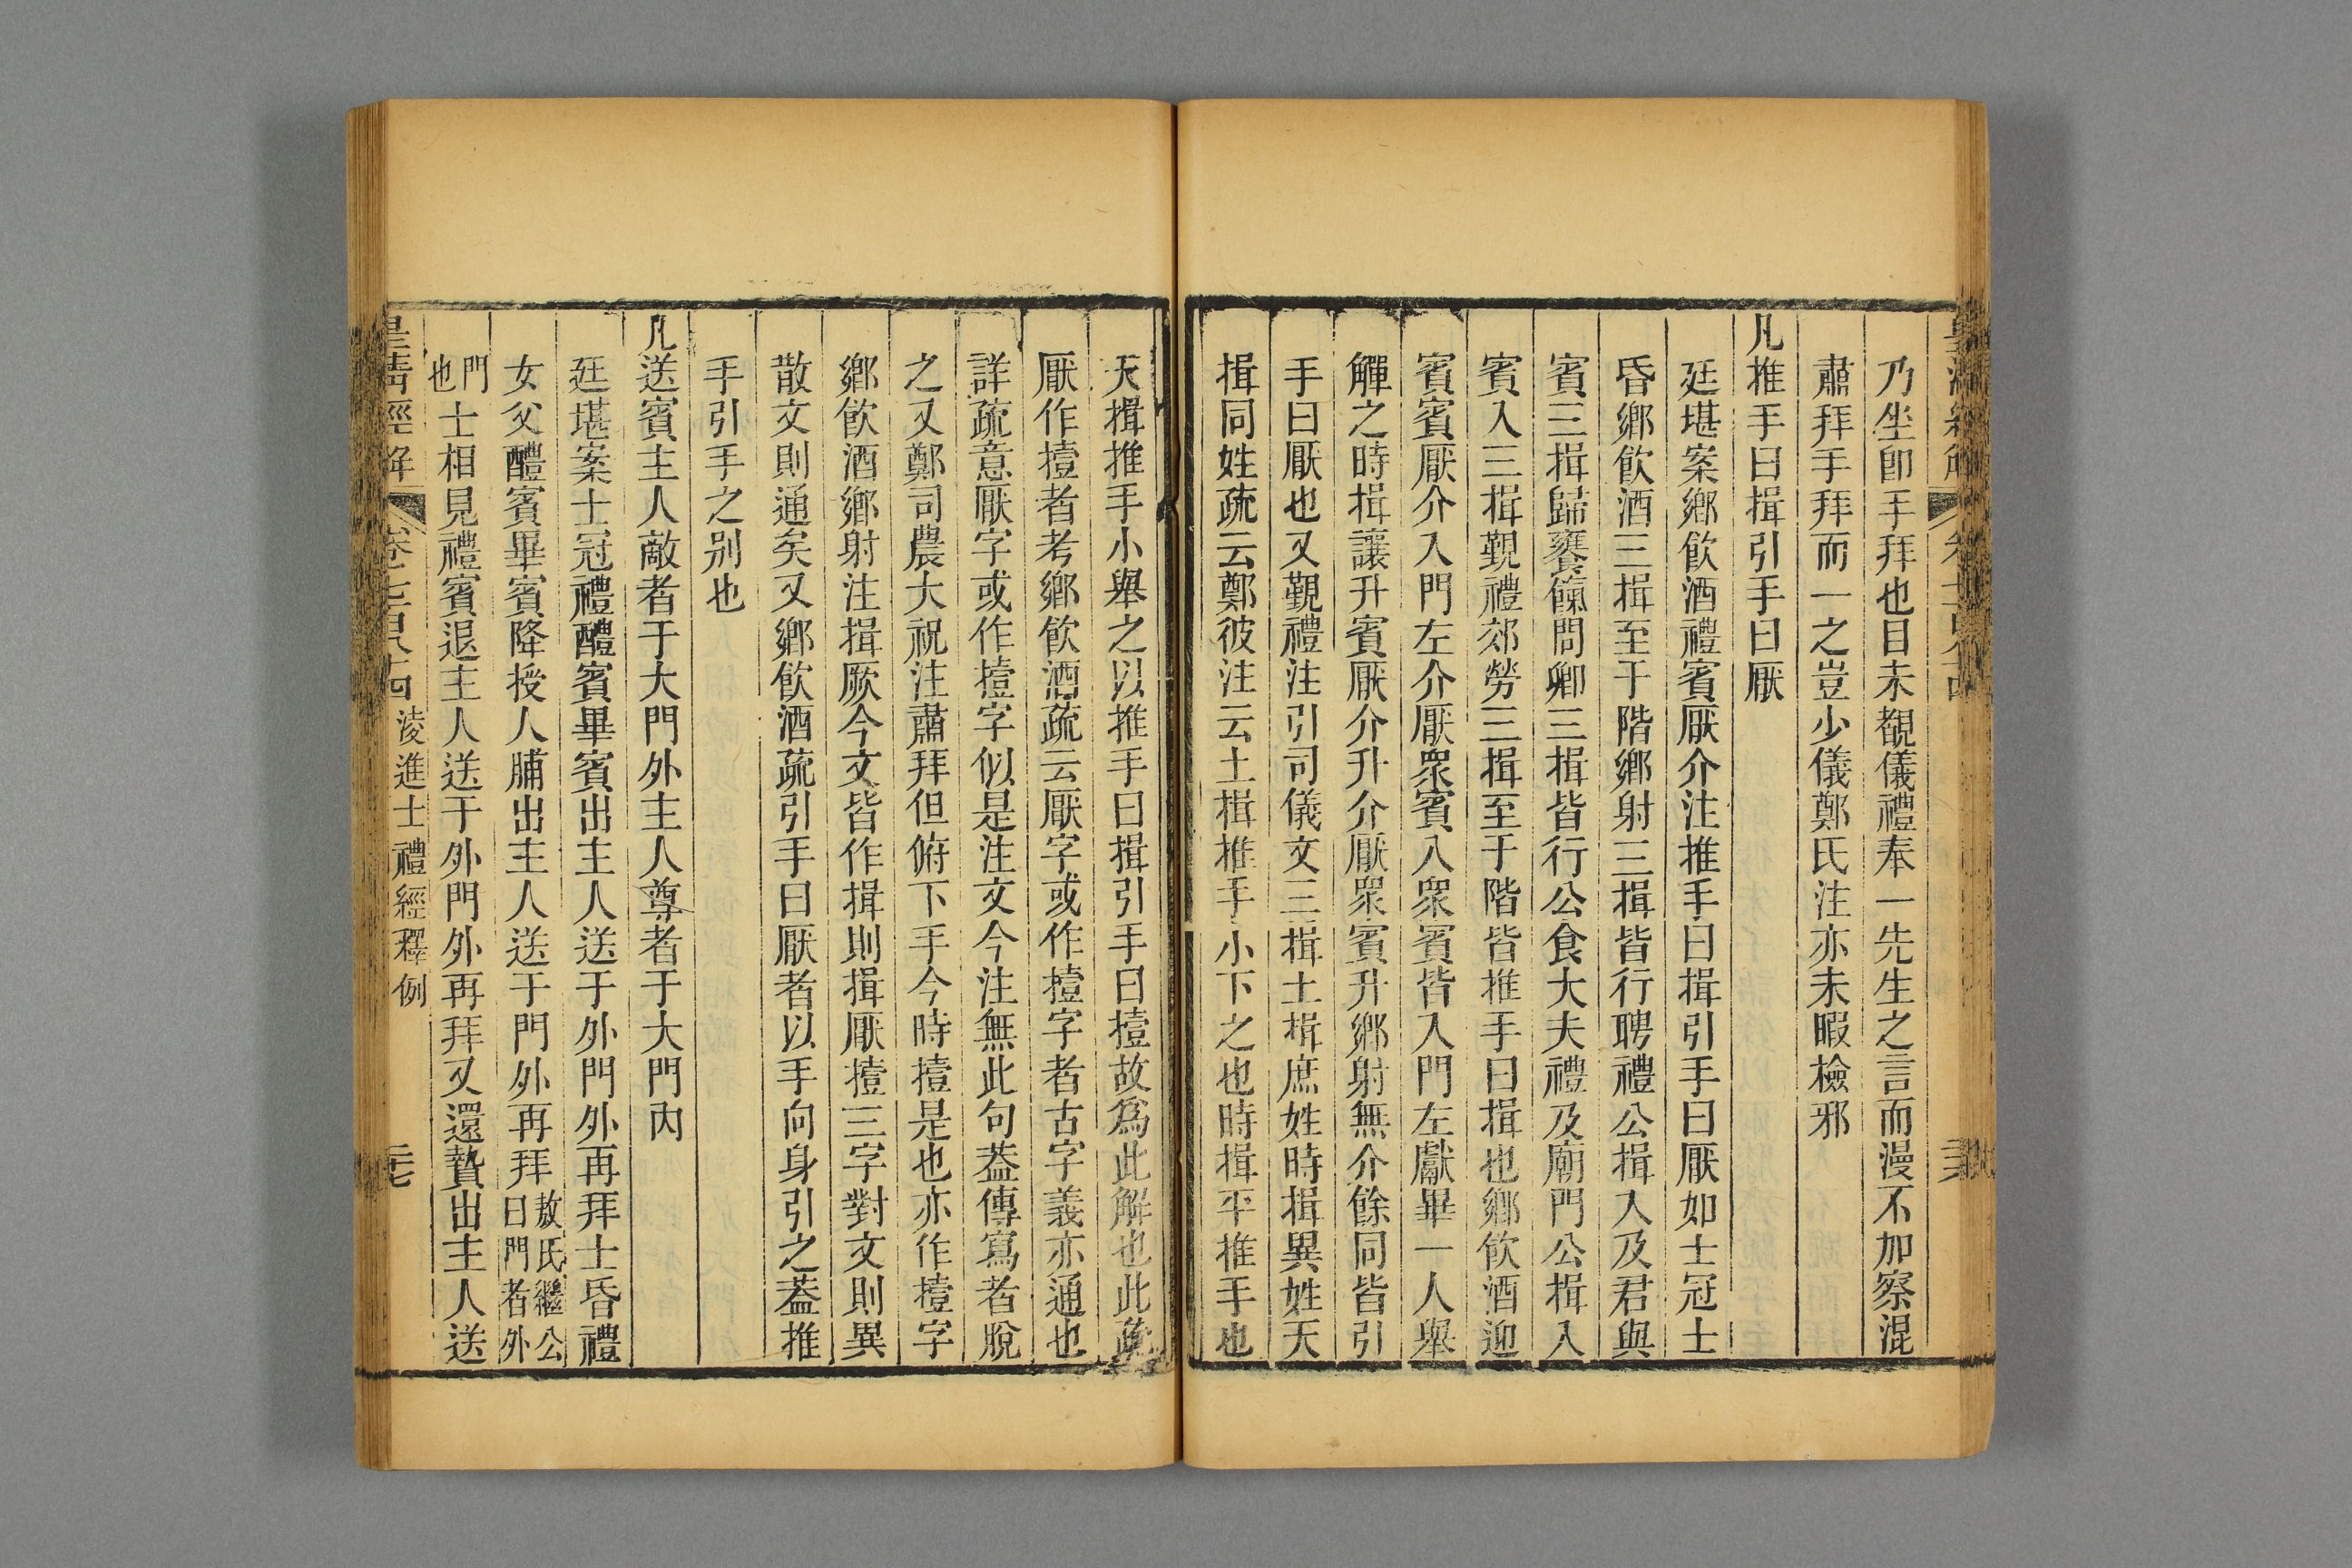 乃坐卽手拜也目未覩儀禮奉一先生之言而漫不加察混
肅拜手拜而一之豈少儀鄭氏注亦未暇檢邪
凡推手曰揖引手曰厭
廷堪案鄉飮酒禮賓厭介注推手曰揖引手曰厭如士冠士
昏鄉飮酒三揖至于階鄉射三揖皆行聘禮公揖入及君與
賓三揖歸饔餼問卿三揖皆行公食大夫禮及廟門公揖入
賓入三揖覲禮郊勞三揖至于階皆推手曰揖也鄉飮酒迎
賓賓厭介入門左介厭眾賓入眾賓皆入門左獻畢一人舉
觶之時揖讓升賓厭介升介厭眾賓升鄉射無介餘同皆引
手曰厭也又覲禮注引司儀文三揖土揖庶姓時揖異姓天
揖同姓疏云鄭彼注云土揖推手小下之也時揖平推手也
天揖推手小舉之以推手曰揖引手曰撎故爲此解也此疏
厭作撎者考鄉飮酒疏云厭字或作撎字者古字義亦通也
詳疏意厭字或作撎字似是注文今注無此句葢傳寫者脫
之又鄭司農大祝注肅拜但俯下手今時撎是也亦作撎字
鄉飮酒鄉射注揖厭今文皆作揖則揖厭撎三字對文則異
散文則通矣又鄉飮酒疏引手曰厭者以手向身引之葢推
手引手之别也
凡送賓主人敵者于大門外主人尊者于大門內
廷堪案士冠禮醴賓畢賓出主人送于外門外再拜士昏禮
女父醴賓畢賓降授人脯出主人送于門外再拜敖氏繼公曰門者外
門也士相見禮賓退主人送于外門外再拜又還贄出主人送
皇淸經解 卷七百八十四 淩進士禮經釋例 二七